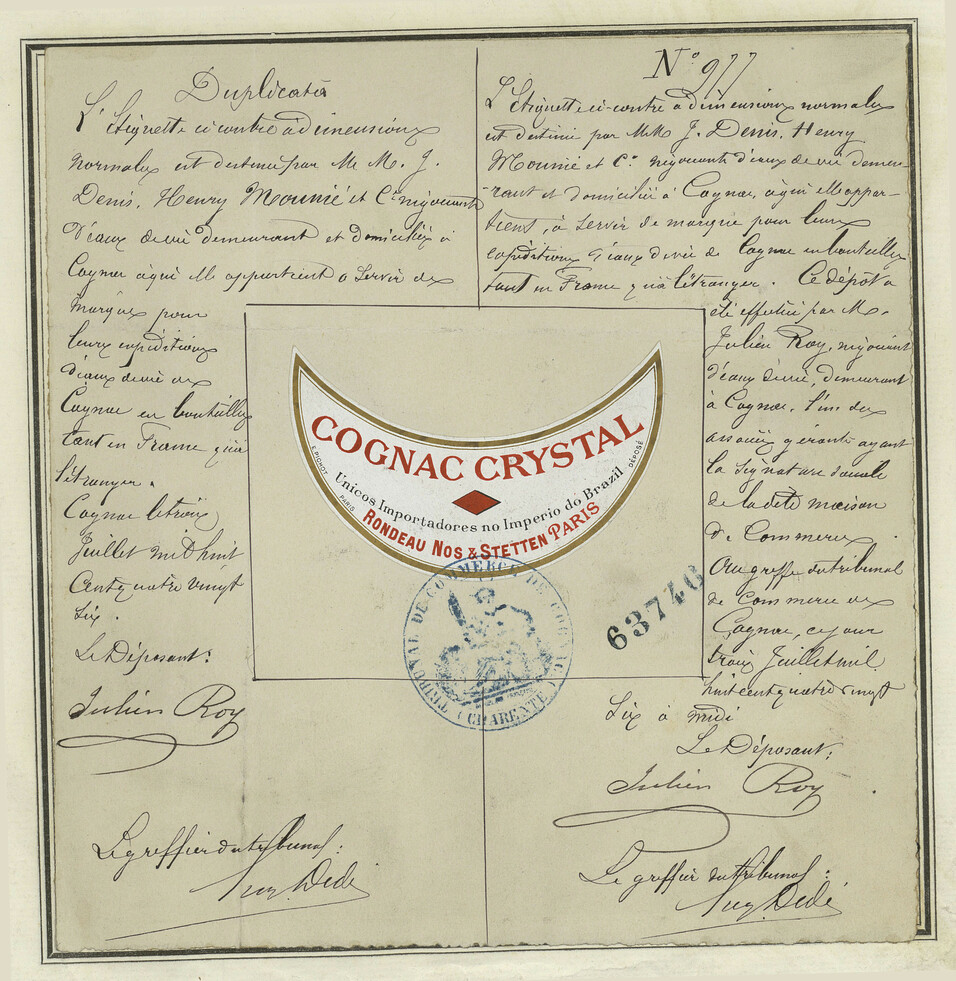 Duplicata
L'Etiquette ci contre à dimensions
normales est destinée par M M. J.
Denis, Henry Mounié et Cie négociants
d'eaux de vie demeurant et domiciliés à
Cognac à qui elle appartient a servir de
marque pour
leurs expéditions
d'eaux de vie de
Cognac en bouteilles
tant en France qu'à
l'étranger.
Cognac le trois
Juillet mil huit
cent quatre vingt
six.
Le Déposant:
Julien Roy
Le greffier du tribunal:
N° 977
L'Etiquette ci-contre à dimensions normales
est destinée par MM J. Denis, Henry
Mounié et Cie négociants d'eaux de vie demeu-
rant et domiciliés à Cognac, à qui elle appar-
tient, à servir de marque pour leurs
expéditions d'eaux de vie de Cognac en bouteilles
tant en France qu'à l'étranger. Ce dépôt a
été effectué par M.
Julien Roy, négociant
d'eaux de vie, demeurant
à Cognac, l'un des
associés gérants ayant
la signature sociale
de la dite maison
de Commerce.
Au greffe du tribunal
de Commerce de
Cognac, ce jour
trois Juillet mil
huit cent quatre vingt
six à midi
Le Déposant:
Julien Roy
Le greffier du tribunal:
COGNAC CRYSTAL
Unicos Importadores no Imperio do Brazil
RONDEAU NOS & STETTEN PARIS
E. PICHOT
PARIS
DÉPOSÉ
TRIBUNAL DE COMMERCE DE COGNAC
(CHARENTE)
63746